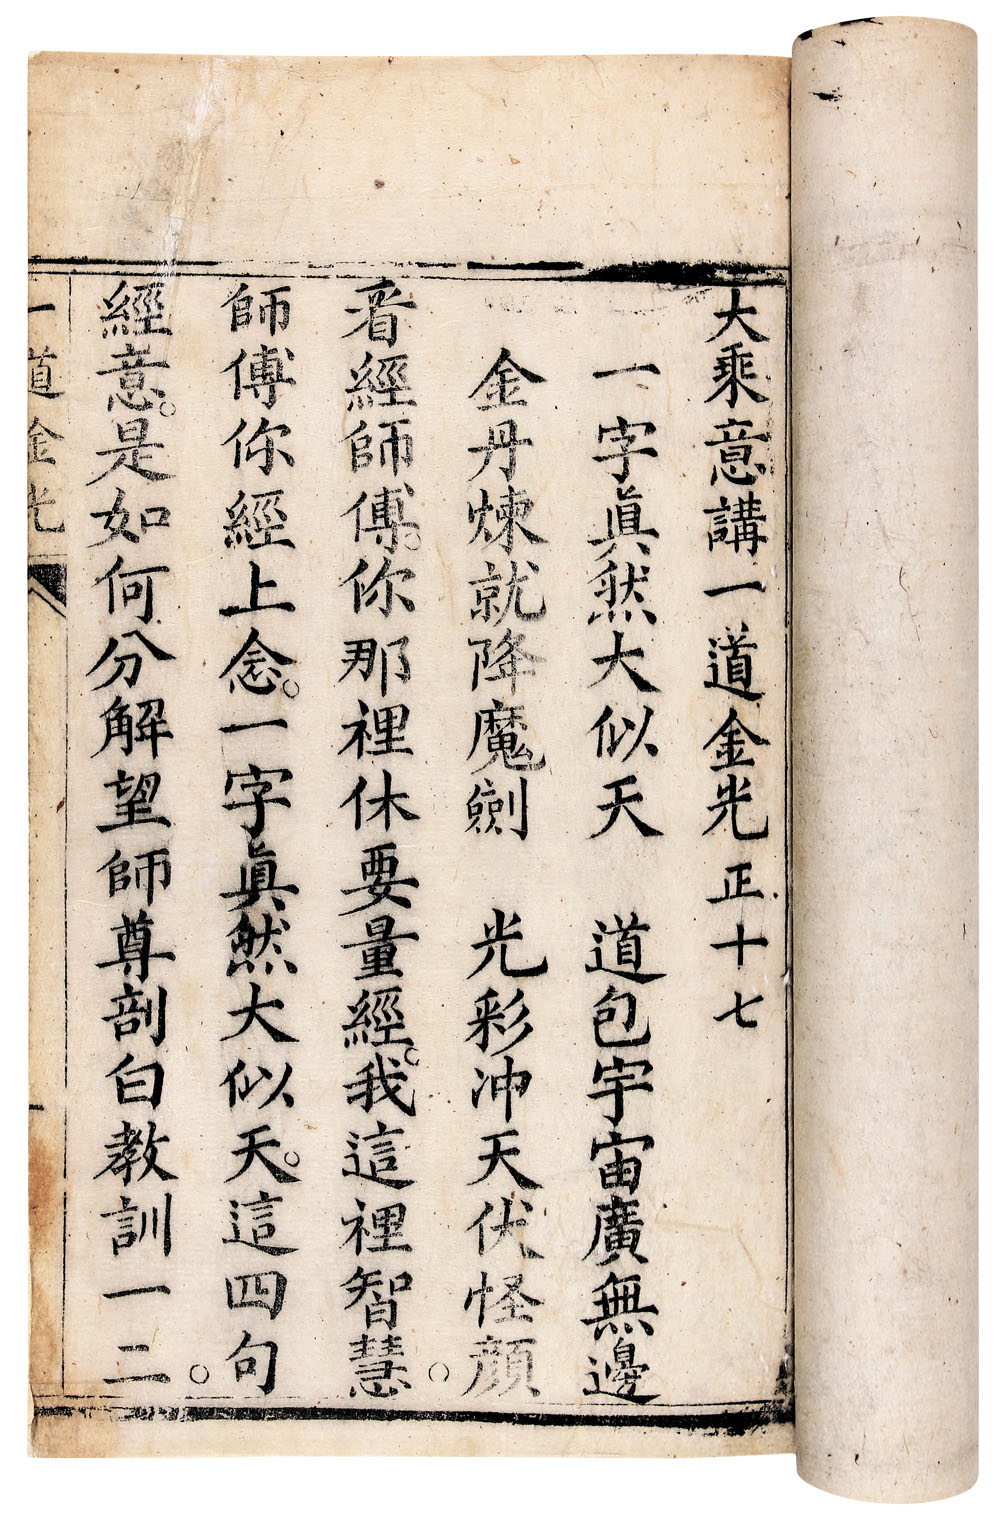 大乘意講一道金光 正十七
一字眞然大似天 道包宇宙廣無邊
金丹煉就降魔劍 光彩冲天伏怪顔
看經師傅。你那裡休要量經。我這裡智慧。
師傅你經上念。一字眞然大似天。這四句。
經意。是如何分解望師尊剖白教訓一二
一道金光